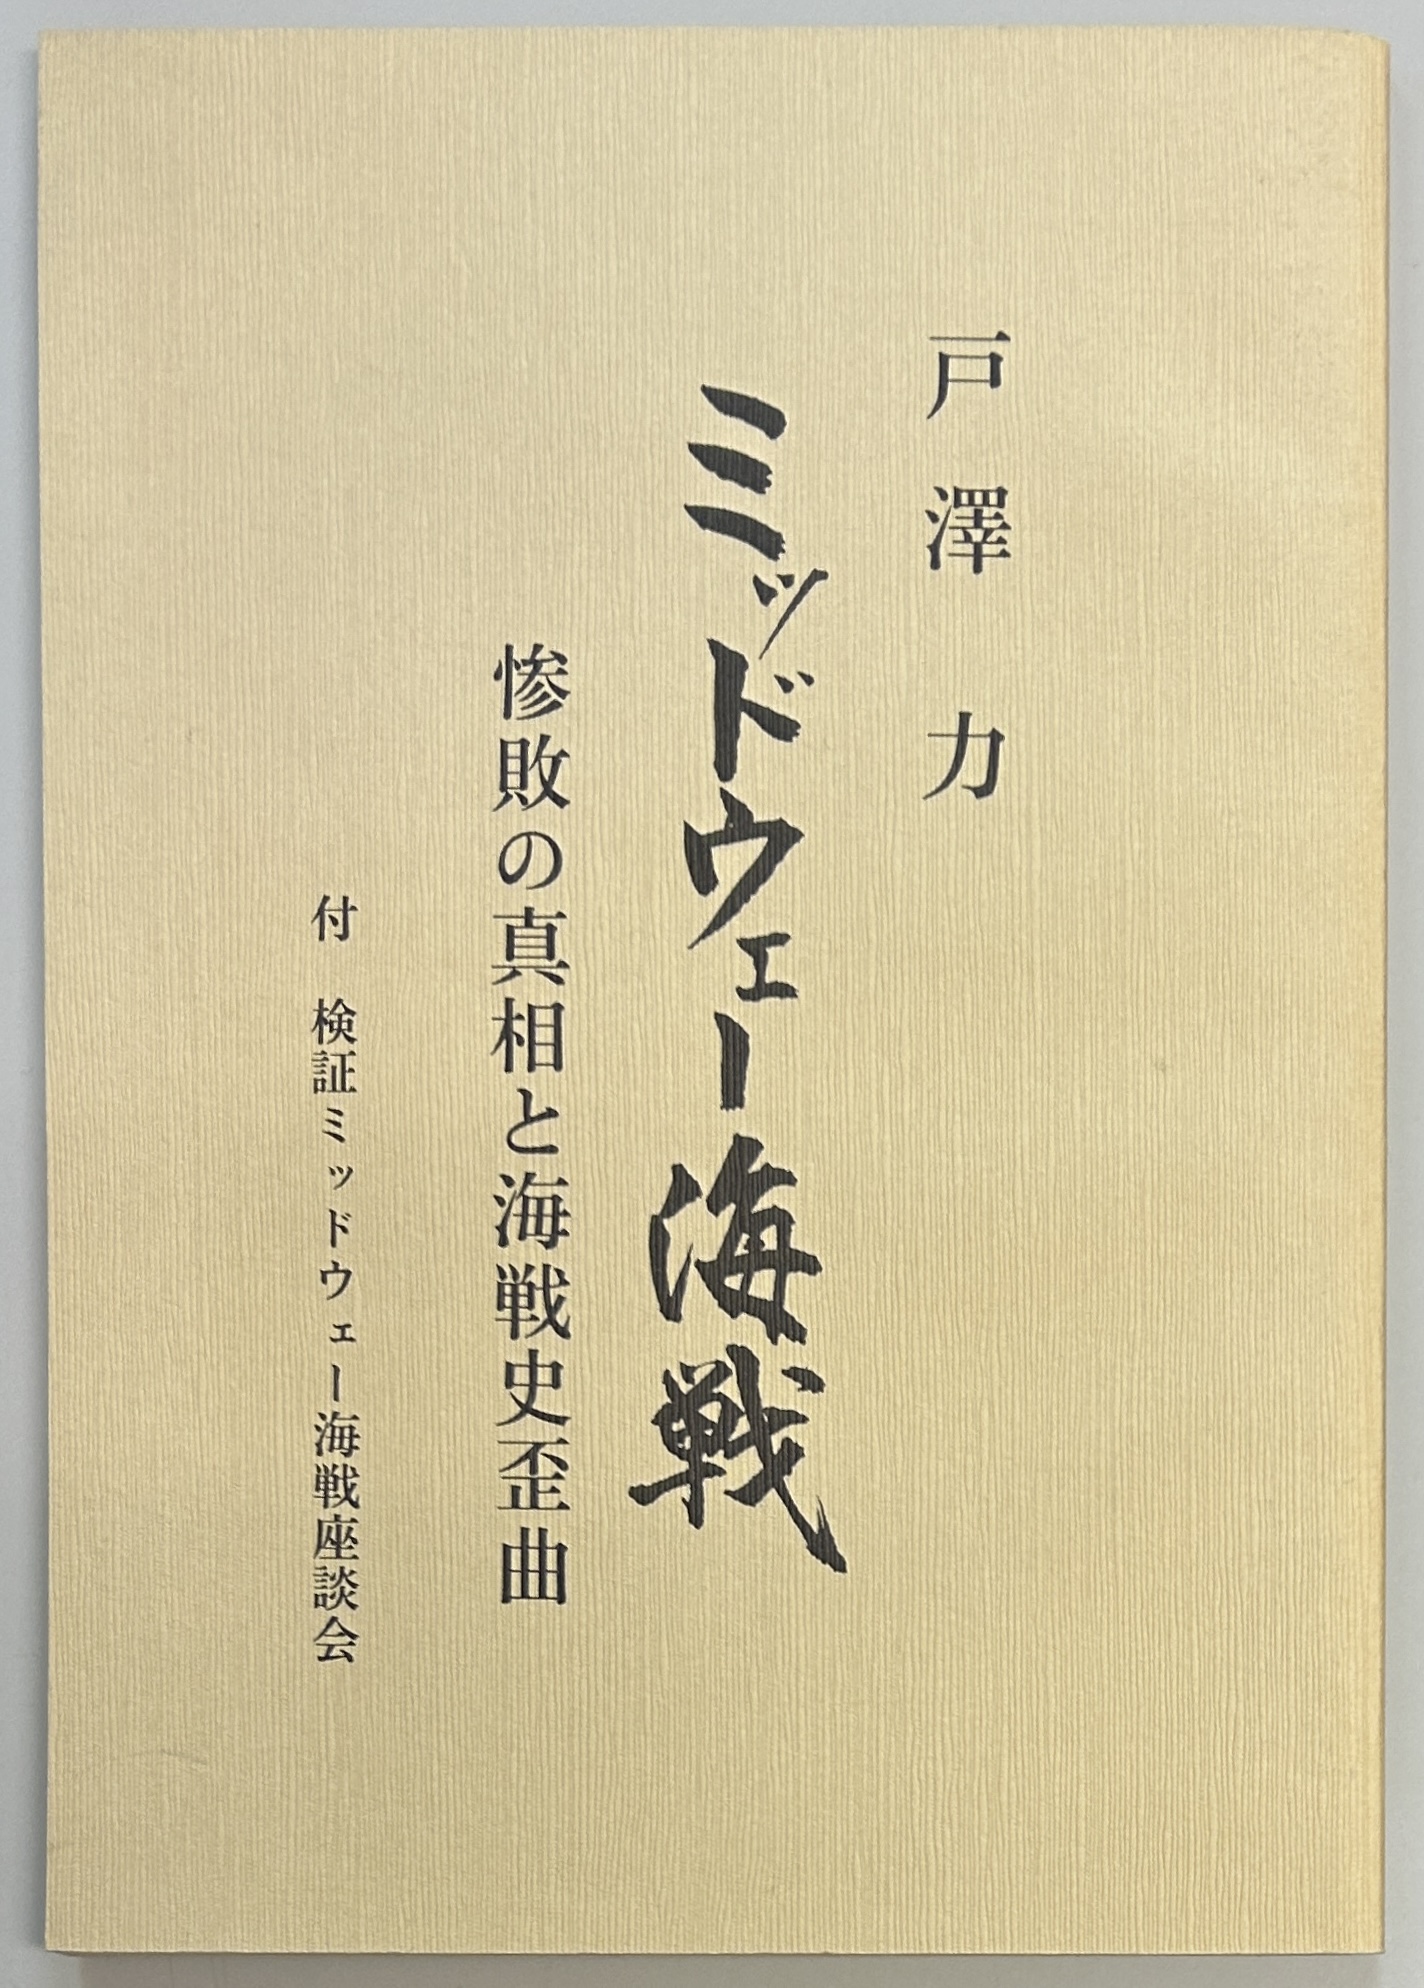 戸澤力
ミッドウェー海戦
惨敗の真相と海戦史歪曲
付　検証ミッドウェー海戦座談会